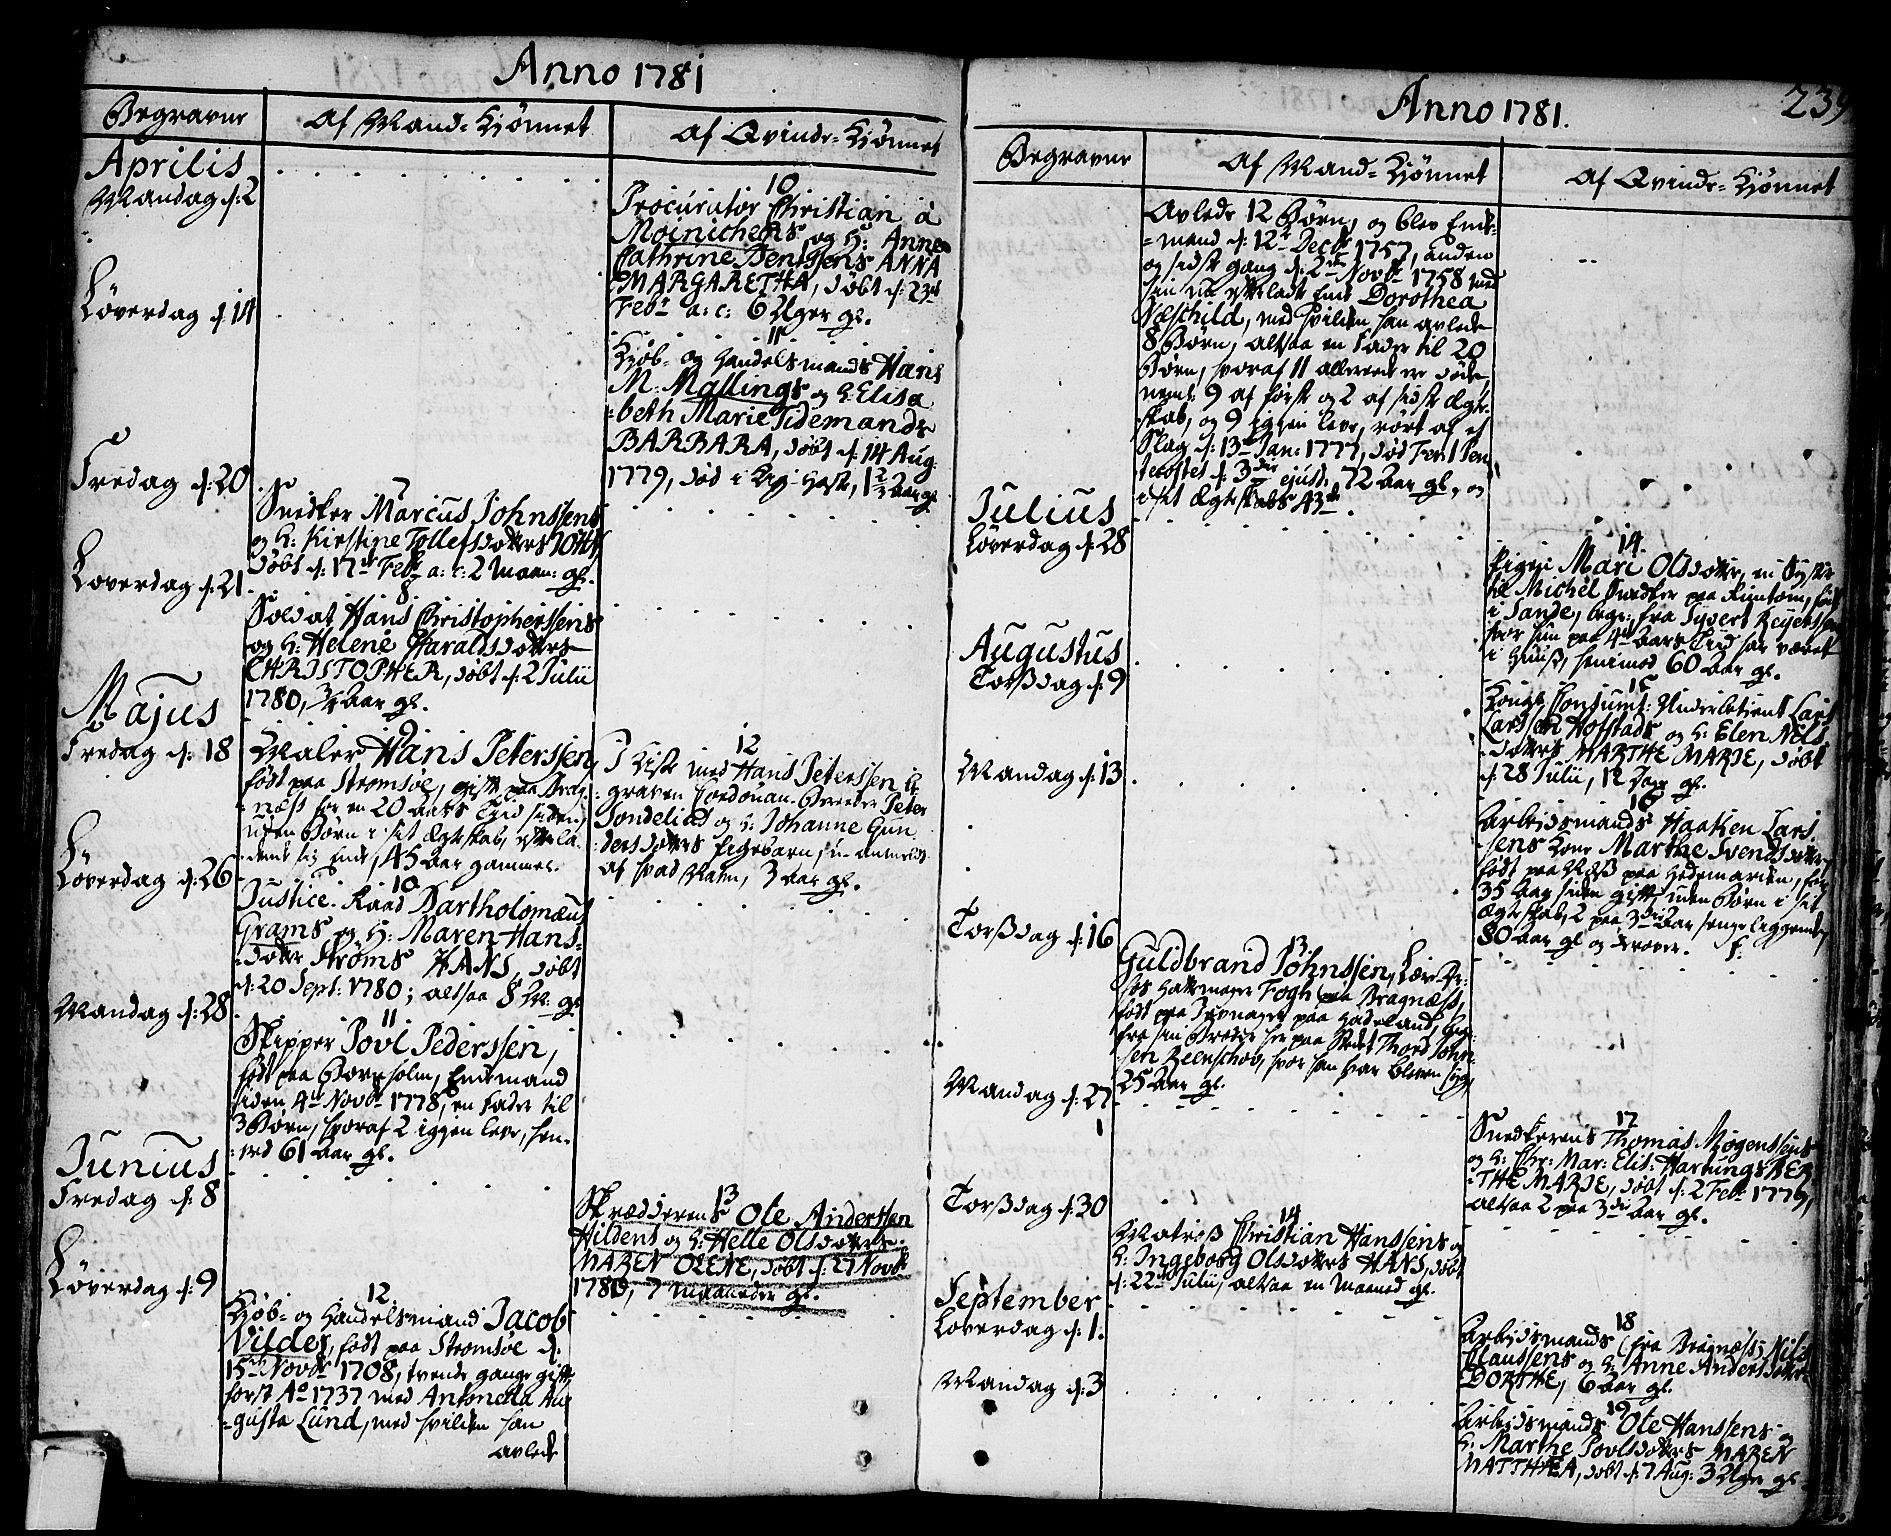 Anno 1781
Begravne
Af Mand-Kjønnet
Af Qvinde-Kjønnet
Aprilis
Mandag d: 2
10
Procurator Christian á
Moinichens og H: Anne
Cathrine Bentssens ANNA
MARGARETHA, døbt d: 23d
Febr a: c: 6 Uger gl.
Løverdag d 14
11
Kjøb- og Handelsmands Hans
M: Mallings og H: Elisa
beth Marie Tidemands
BARBARA, døbt d: 14 Aug:
1779, død i Aar gl
Fredag d: 20
7
Snedker Marcus Johnssens
og H: Kirstine Tollefsdotters
døbt d: 17d Febr a: c: 2 Maan: gl.
Løverdag d: 21
8
Soldat Hans Christopherssens
og H: Helene Haraldsdotters
CHRISTOPHER, døbt d: 2 Julii
1780, 3/4 Aar gl.
Majus
Fredag d: 18
9
Maler Hans Peterssen,
født paa Strømsøe, gift paa Brag-
næss for en 20 Aars Tid siden,
uden Børn i sit Ægteskab, efterla-
dende sig Enke, 45 Aar gammel.
12
I Kiste med Hans Peterssen be
graven Cordouan-Bereder Peter
Sondelius og H: Johanne Gun
dersdotters Pigebarn,
af hvad Navn, 3 Aar gl.
Løverdag d: 26
10
Justice-Raad Bartholomæus
Grams og H: Maren Hans-
dotter Strøms HANS, døbt
d: 20 Sept: 1780; altsaa 8 M: gl
Mandag d: 28
11
Skipper Povl Pederssen,
født paa Bornholm, Enkemand
siden 4d Novbr 1778, en Fader til
3 Børn, hvoraf 2 iggjen leve, hen-
ved 61 Aar gl.
Junius
Fredag d: 8
13
Skrædderens Ole Anderssen
Hildens og H: Helle Olsdotters
MAREN OLENE, døbt d: 27 Novbr
1780, 7 Maaneder gl.
Løverdag d: 9
12.
Kjøb- og Handelsmand Jacob
Nildes, født paa Strømsøe d:
15de Novbr 1708, tvende gange gift,
først Ao 1737 med Antonetta Au-
gusta Lund, med hvilken han
avlede
Anno 1781.
239
Begravne
Af Mand-Kjønnet
Af Qvinde-Kjønnet
Avlede 12 Børn, og blev Enke-
mand d: 12te Decbr 1757, anden
og sidste gang d: 2den Novbr 1758 med
sin nu efterladte Enke Dorothea
Næschild, med hvilken han avlede
8 Børn, altsaa en Fader til 20
Børn, hvoraf 11 allerede ere døde,
neml: 9 af første og 2 af sidste Ægte-
skab, og 9 iggjen leve, rørt af et
Slag d: 13de Jan: 1777, død Fer: 1 Pen
tecostes d: 3die ejusd. 72 Aar gl., og
i sit Ægteskabs 43de.
Julius
Løverdag d: 28
14.
Pigen Mari Olsdotter, en Syster
til Michel Snedker paa Rundtom, født
i Sande, begr: fra Syvert Reyerssen
hvor hun paa 4de Aars Tid har været
i Huus, henimod 60 Aar gl.
Augustus
Torsdag d: 9
15
Kongl: Consumt: Underbetient Lars
Larssen Hofstads og H: Elen Nels
dotters MARTHE MARIE, døbt
d: 28 Julii, 12 Dage gl.
Mandag d: 13.
16
Arbejdsmands Haaken Lars
sens Kone Marthe Svendsdotter,
født paa Næss paa Hedemarken, for
35 Aar siden gift, uden Børn i sit
Ægteskab, 2 paa 3die Aar sengeliggende,
80 Aar gl og derover.
Torsdag d: 16
13.
Guldbrand Johnssen,
hos Hattemager Fogh paa Bragnæss,
født paa Jevnager paa Hadeland, begr:
fra sin Broder her paa Stedet Thord John
sen Reenschov, hvor han har bleven syg,
25 Aar gl.
Mandag d: 27
17
Snedkerens Thomas Mogenssens
og H: Chr: Mar: Elis: Hartungs BER
THE MARIE, døbt d: 2 Feb: 1779,
altsaa 2 paa 3die Aar gl.
Torsdag d: 30
14
Matros Christian Hanssens og
H: Ingeborg Olsdotters HANS, døbt
d: 22de Julii, altsaa en Maaned gl.
September
Løverdag d: 1.
18
Arbejdsmands (fra Bragnæss) Nils
Claussens og H: Anne Andersdotter
DORTHE, 6 Aar gl.
Mandag d: 3
19
Arbejdsmands Ole Hanssens og
H: Marthe Povlsdotters MAREN
MATTHEA, døbt d: 7 Aug: 3 Uger gl